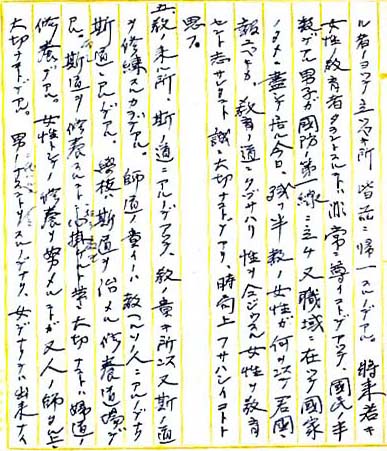 ル者ノヨツテ立ツベキ所皆茲ニ帰一スルノデアル。将来若キ
女性ノ教育者タラントスルコトハ非常ニ尊イコトデアツテ、国民ノ半
数デアル男子ガ国防ノ第一線ニ立チ又職域ニ在ツテ国家
ノタメニ盡シテ居ル今日、残ツタ半数ノ女性ガ何ヲ以テ君国ニ
報ユベキカ、教育ノ道ニタヅサハリ性ヲ同ジウスル女性ヲ教育
セントスル者サレコト誠ニ大切ナコトデアリ、時局上フサハシイコトト
思フ。
五、教ノ来ル所、斯ノ道ニアルデアル。教ノ童キ所ニ又斯ノ道
ヲ修練スルカデアル。師道ノ童イノハ教ヘルソノ人ニアルデナク
斯道ニアルデアル。學校ハ斯道ヲ治メル修養道場デ
アル。斯道ヲ修養スルコトニ心掛ケルト共ニ大切ナコトハ婦道ノ
修養デアル。女性トシテノ修養ヲ努メルコトガ又人ノ師タル上ニ
大切ナコトデアル。男ノナストヲスルノデナク、女デナケレバ出来ナイ